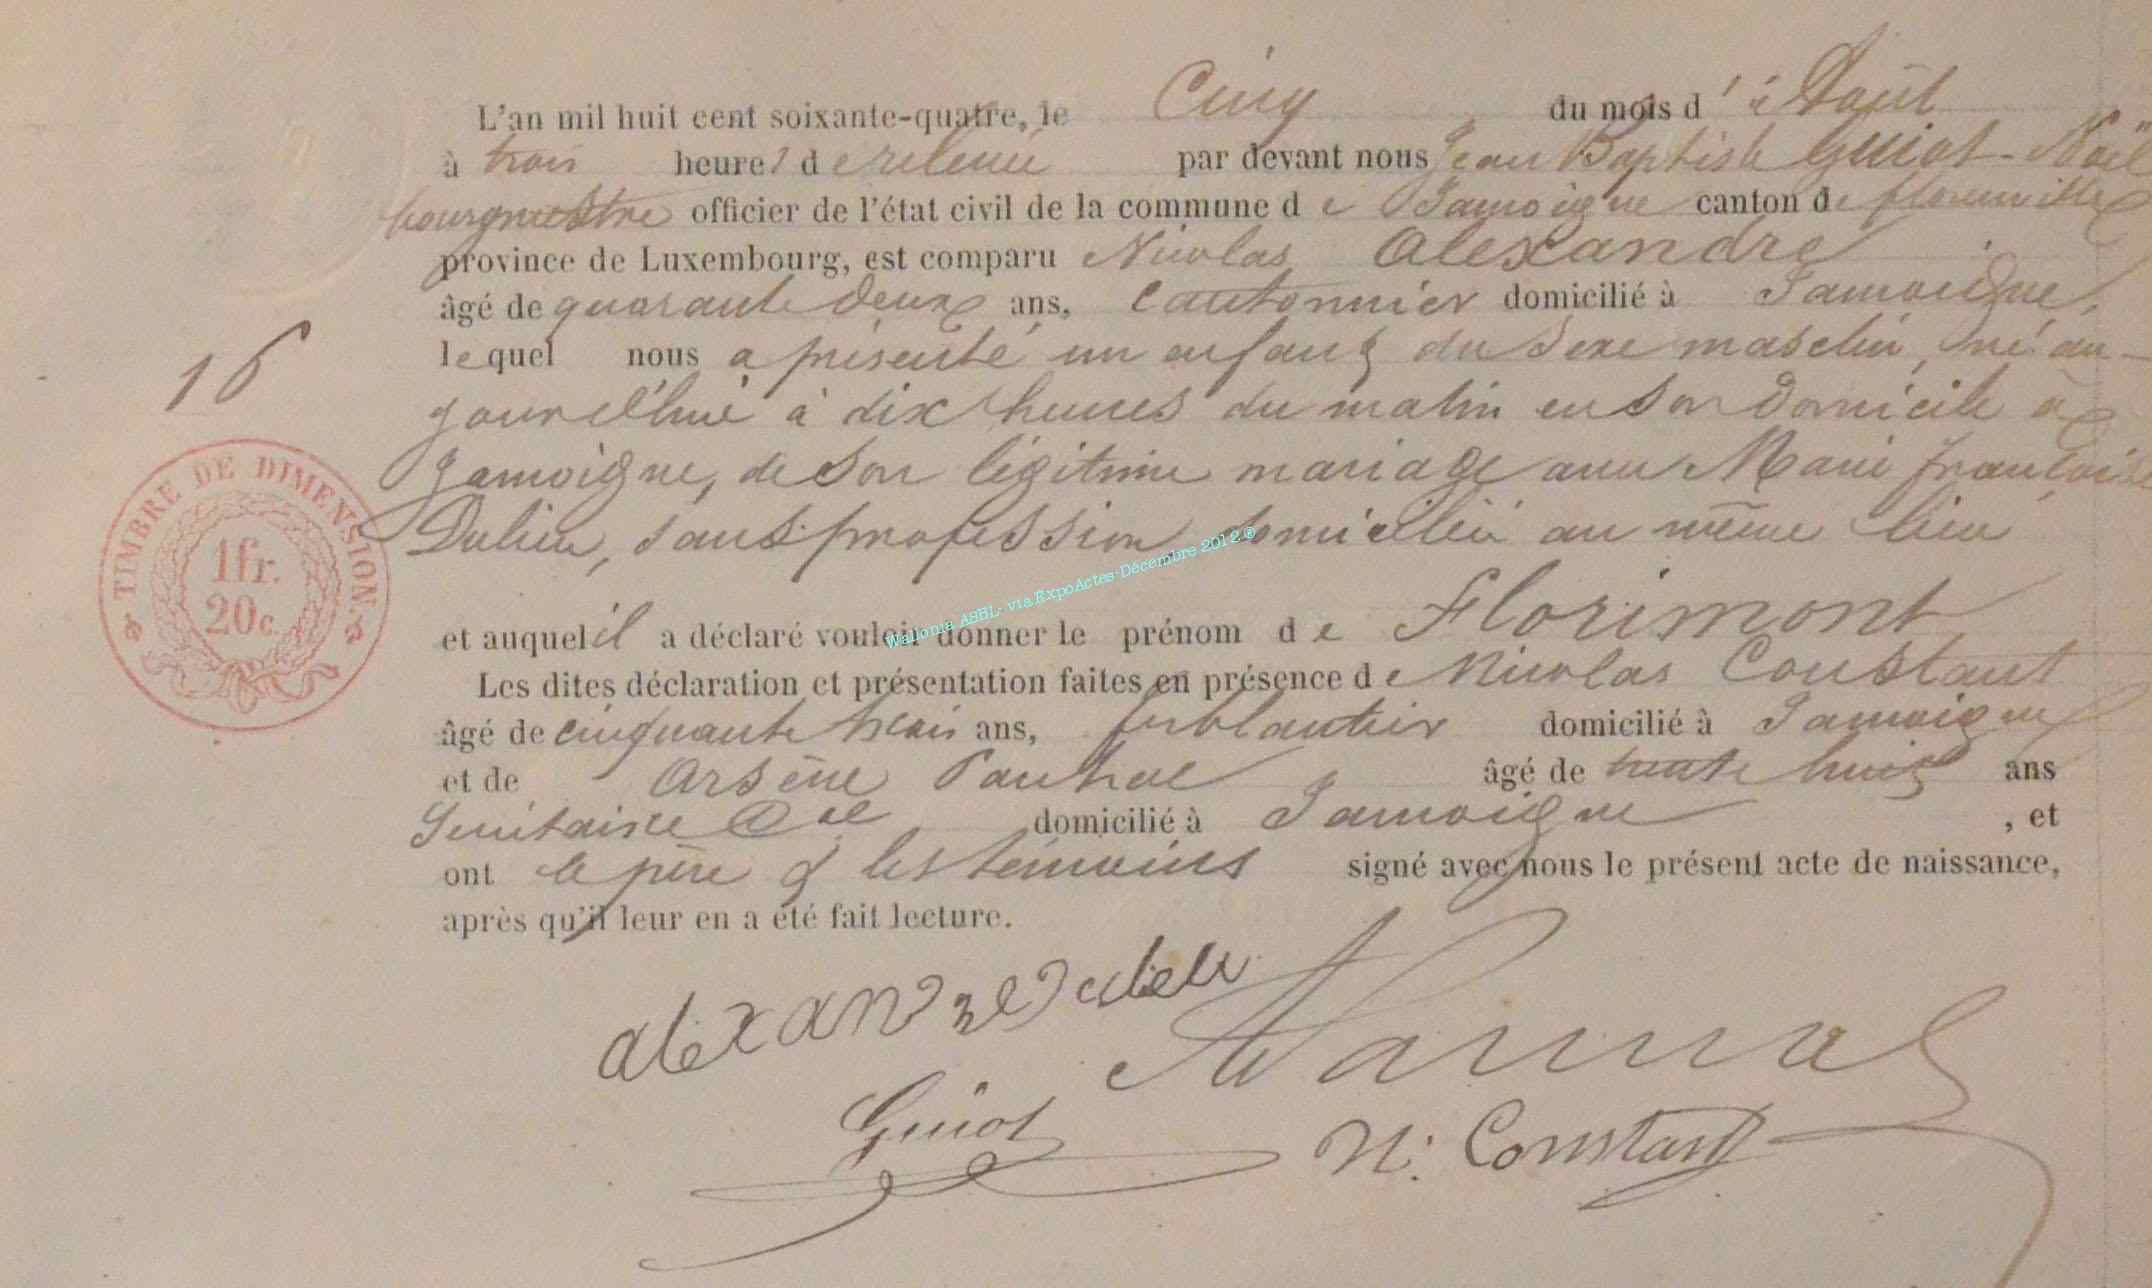 L'an mil huit cent soixante-quatre, le Cinq du mois d' Août
à trois heures de relevée par devant nous Jean Baptiste Guiot-Noël
bourgmestre officier de l'état civil de la commune de Jamoigne canton de florenville
province de Luxembourg, est comparu Nicolas Alexandre
âgé de quarante deux ans, Cantonnier domicilié à Jamoigne,
lequel nous a présenté un enfant du Sexe masclin, né au-
jourd'hui à dix heures du matin en son domicile à
Jamoigne, de son légitime mariage avec Marie françoise
Dulieu, sans profession domiciliée au même lieu
et auquel il a déclaré vouloir donner le prénom de Florimont
Les dites déclaration et présentation faites en présence de Nicolas Constant
âgé de cinquante trois ans, ferblantier domicilié à Jamoigne
et de Arsène âgé de trente huit ans
Secrétaire Cal domicilié à Jamoigne , et
ont le père & les témoins signé avec nous le présent acte de naissance,
après qu'il leur en a été fait lecture.
16
TIMBRE DE DIMENSION.
1fr.
20c.
Wallonia ASBL- via ExpoActes-Décembre 2012 ®
alexandre
Guiot
N. Constant